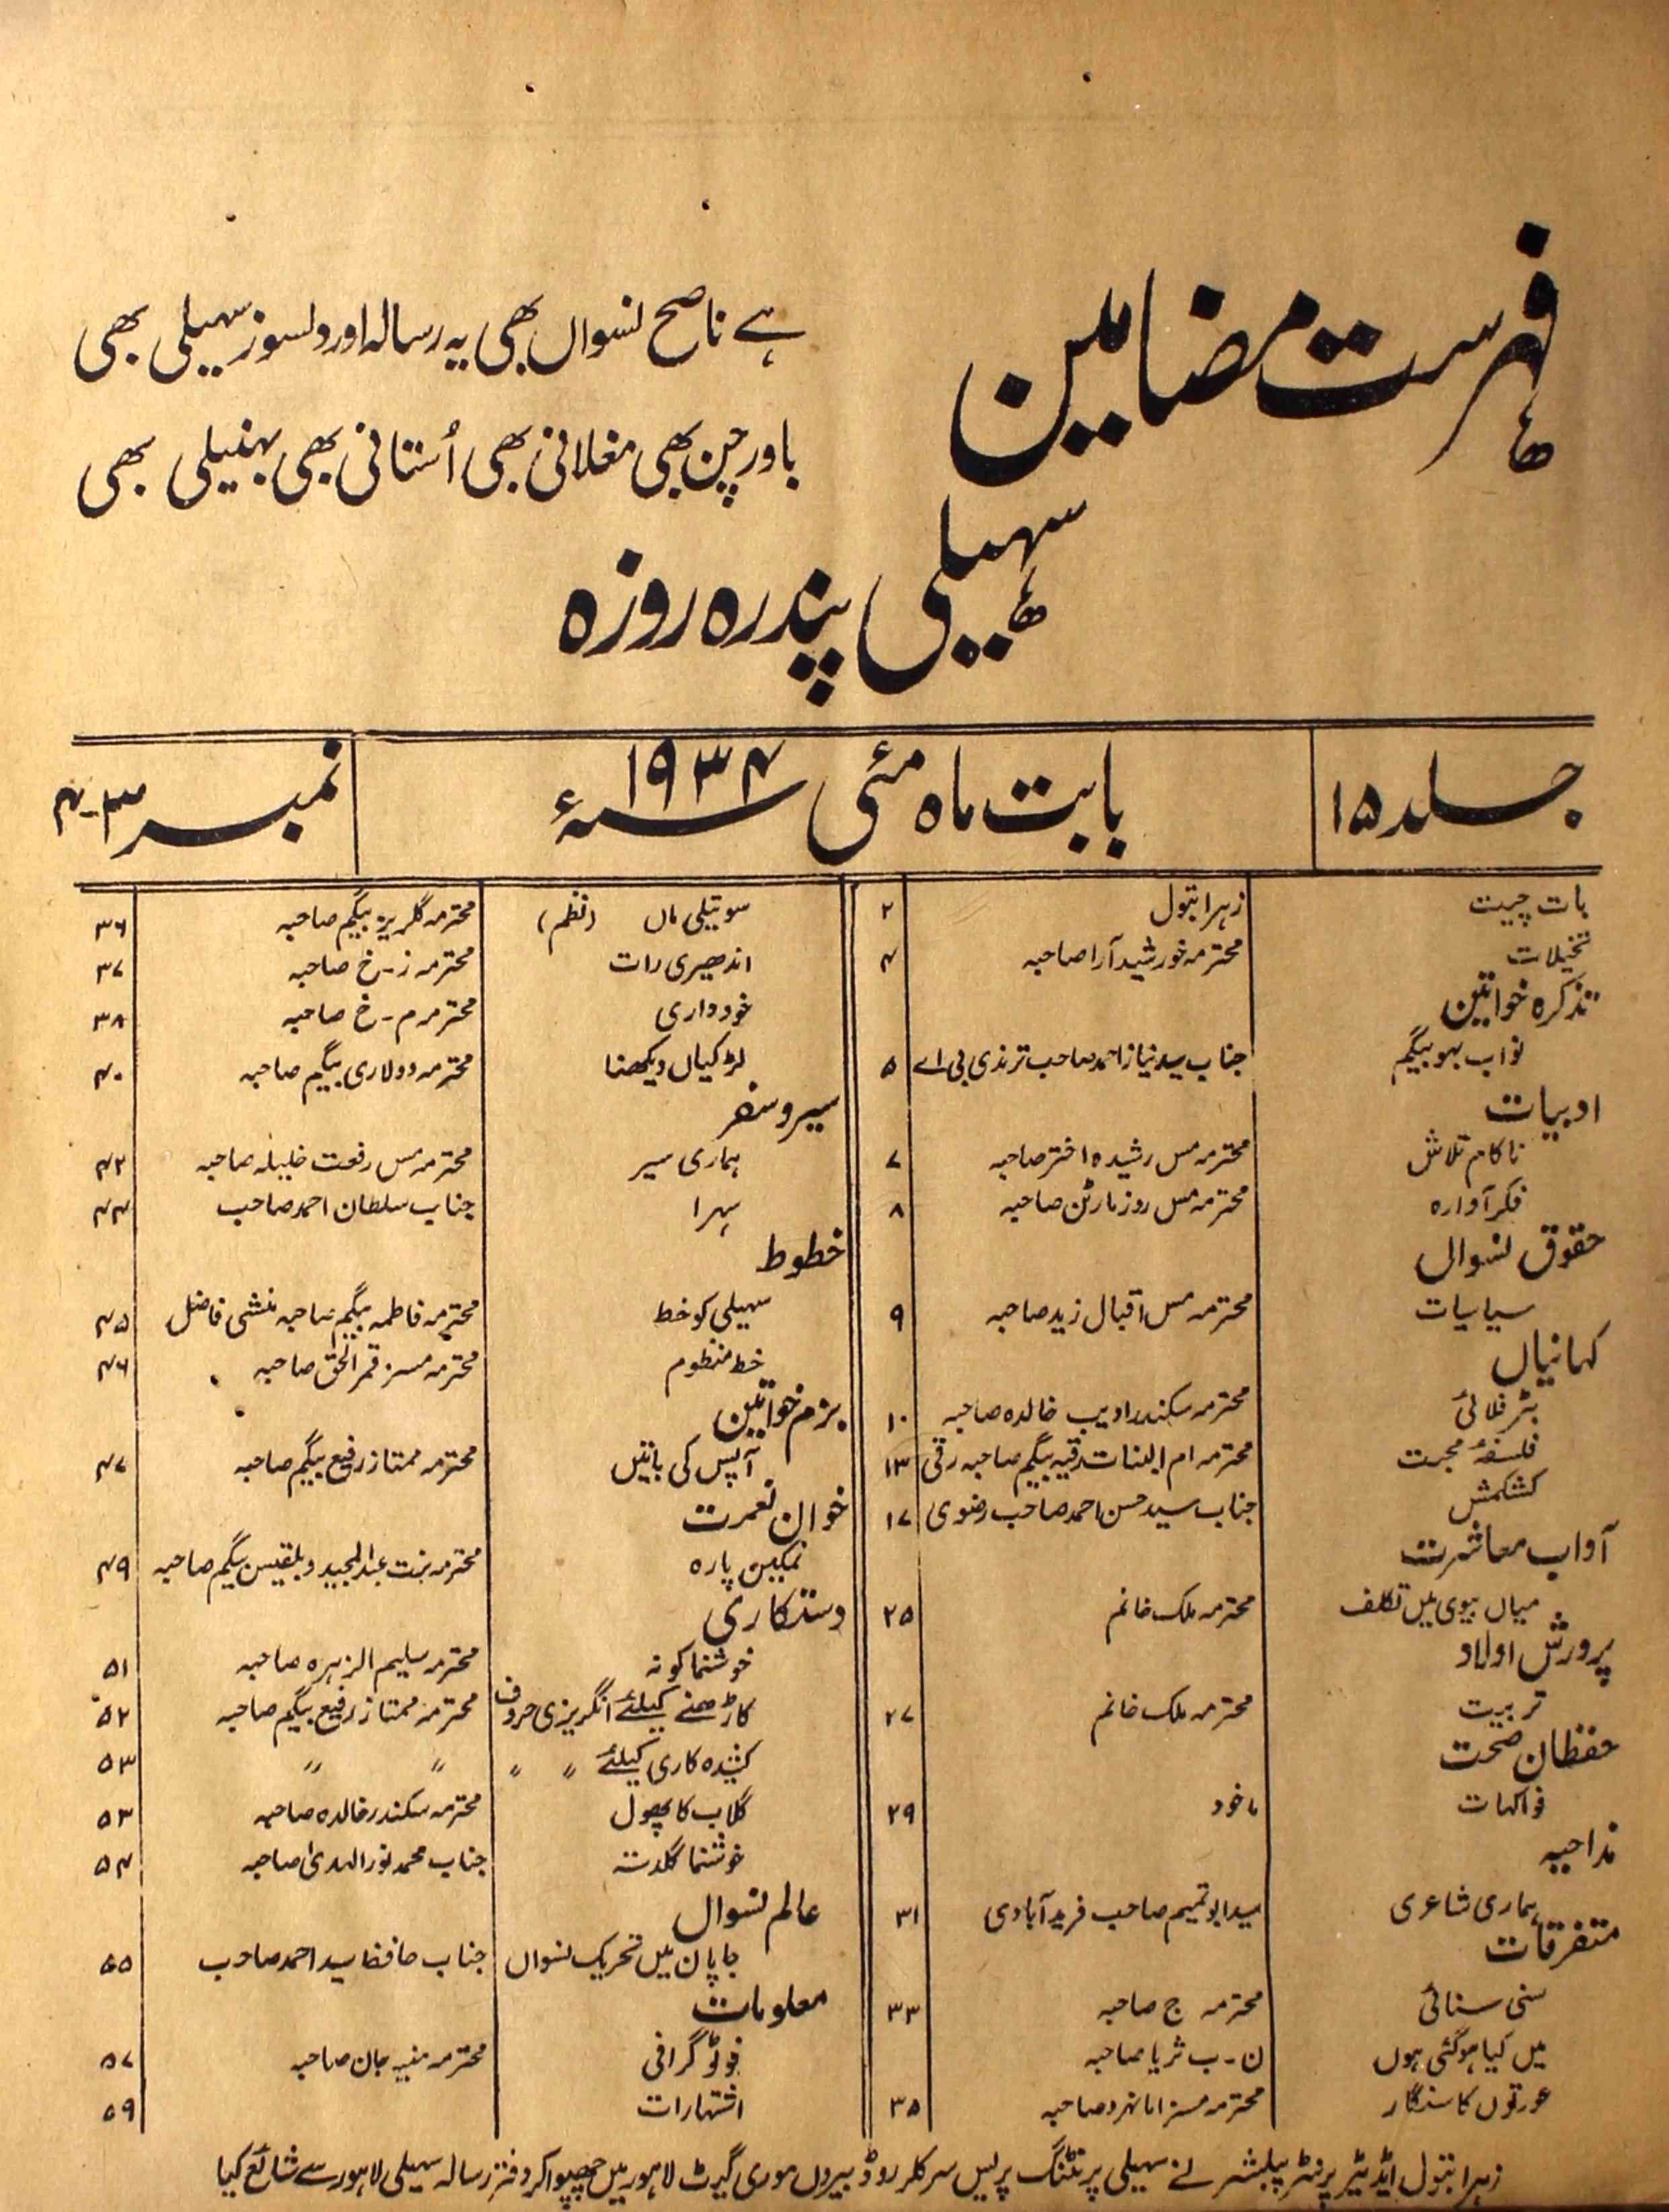 فہرست مضامین
ہے ناصح نسواں بھی یہ رسالہ اور دلسوز سہیلی بھی
باورچن بھی مغلانی بھی اُستانی بھی پہیلی بھی
سہیلی پندرہ روزہ
جلد ۱۵ بابت ماہ مئی ۱۹۳۴ء نمبر ۳-۴
بات چیت زہرا بتول ۲
تخیلات محترمہ خورشید آرا صاحبہ ۴
تذکرہ خواتین
نواب بہو بیگم جناب سید نیاز احمد صاحب ترمذی بی اے ۵
ادبیات
ناکام تلاش محترمہ مس رشیدہ اختر صاحبہ ۷
فکر آوارہ محترمہ مس روز مارٹن صاحبہ ۸
حقوق نسواں
سیاسیات محترمہ مس اقبال زید صاحبہ ۹
کہانیاں
بٹر فلائی محترمہ سکندر ادیب خالدہ صاحبہ ۱۰
فلسفۂ محبت محترمہ ام البنات رقیہ بیگم صاحبہ رقی ۱۳
کشمکش جناب سید حسن احمد صاحب رضوی ۱۷
آداب معاشرت
میاں بیوی میں تکلف محترمہ ملک خانم ۲۵
پرورش اولاد
تربیت محترمہ ملک خانم ۲۷
حفظان صحت
فواکہات ماخود ۲۹
مذاحیہ
ہماری شاعری سید ابو تمیم صاحب فرید آبادی ۳۱
متفرقات
سنی سنائی محترمہ ج صاحبہ ۳۳
میں کیا ہوگئی ہوں ن-ب ثریا صاحبہ
عورتوں کا سنگار محترمہ مسز اما نہرو صاحبہ ۳۵
سوتیلی ماں (نظم) محترمہ گلریز بیگم صاحبہ ۳۶
اندھیری رات محترمہ ز-خ صاحبہ ۳۷
خودداری محترمہ م-خ صاحبہ ۳۸
لڑکیاں دیکھنا محترمہ دولاری بیگم صاحبہ ۴۰
سیر و سفر
ہماری سیر محترمہ مس رفعت خلیلہ صاحبہ ۴۲
سہرا جناب سلطان احمد صاحب ۴۴
خطوط
سہیلی کو خط محترمہ فاطمہ بیگم صاحبہ منشی فاضل ۴۵
خط منظوم محترمہ مسز قمر الحق صاحبہ ۴۶
بزم خواتین
آپس کی باتیں محترمہ ممتاز رفیع بیگم صاحبہ ۴۷
خوان نعمت
نمکین پارہ محترمہ بنت عبدالمجید و بلقیس بیگم صاحبہ ۴۹
دستکاری
خوشنما کونہ محترمہ سلیم الزہرہ صاحبہ ۵۱
کاڑھنے کیلئے انگریزی حروف محترمہ ممتاز رفیع بیگم صاحبہ ۵۲
کشیدہ کاری کیلئے 〃 〃 〃 〃 ۵۳
گلاب کا پھول محترمہ سکندر خالدہ صاحبہ ۵۳
خوشنما گلدستہ جناب محمد نور الہدیٰ صاحبہ ۵۴
عالم نسواں
جاپان میں تحریک نسواں جناب حافظ سید احمد صاحب ۵۵
معلومات
فوٹو گرافی محترمہ منیہ جان صاحبہ ۵۷
اشتہارات ۵۹
زہرا بتول ایڈیٹر پرنٹر پبلشر نے سہیلی پرنٹنگ پریس سرکلر روڈ بیروں موری گیٹ لاہور میں چھپوا کر دفتر رسالہ سہیلی لاہور سے شائع کیا